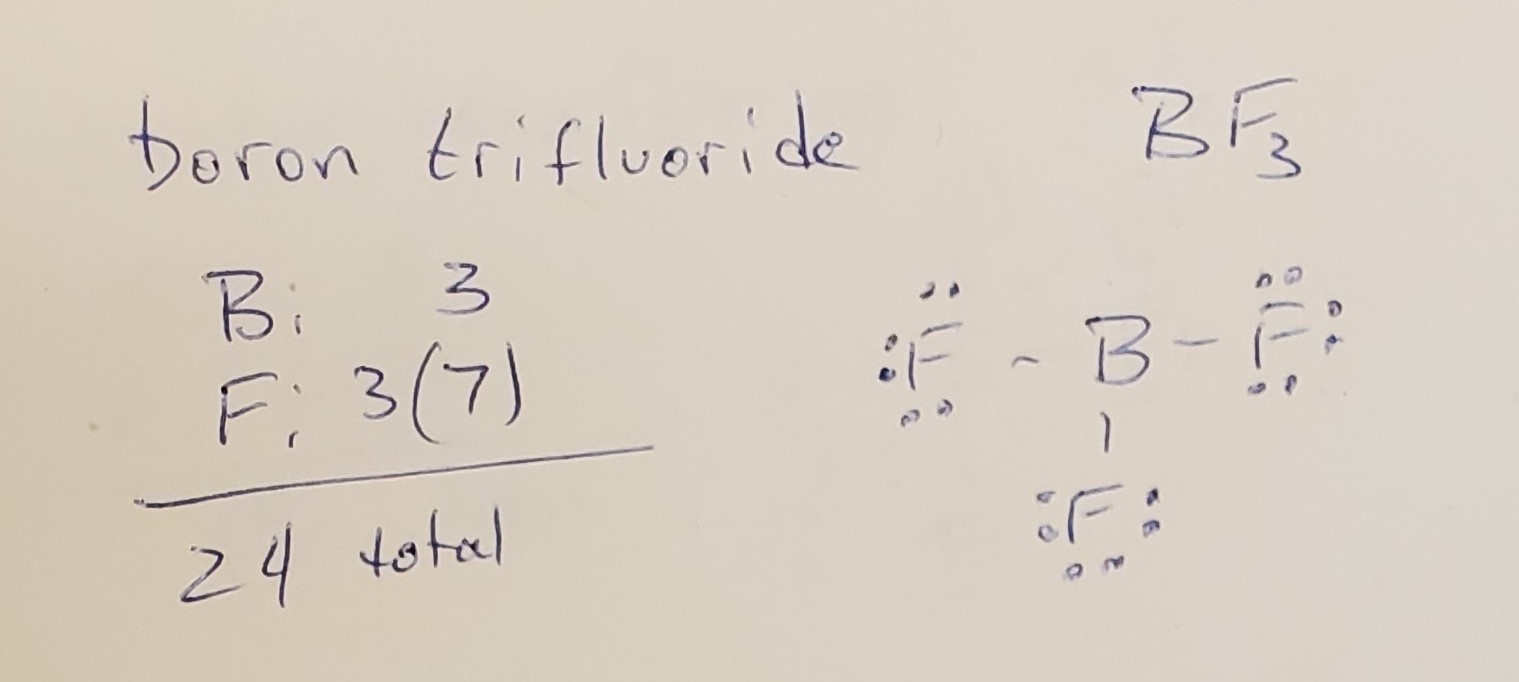 boron trifluoride BF₃
B: 3
F: 3(7)
24 total
:F̤̈ - B - F̤̈:
|
:F̤: